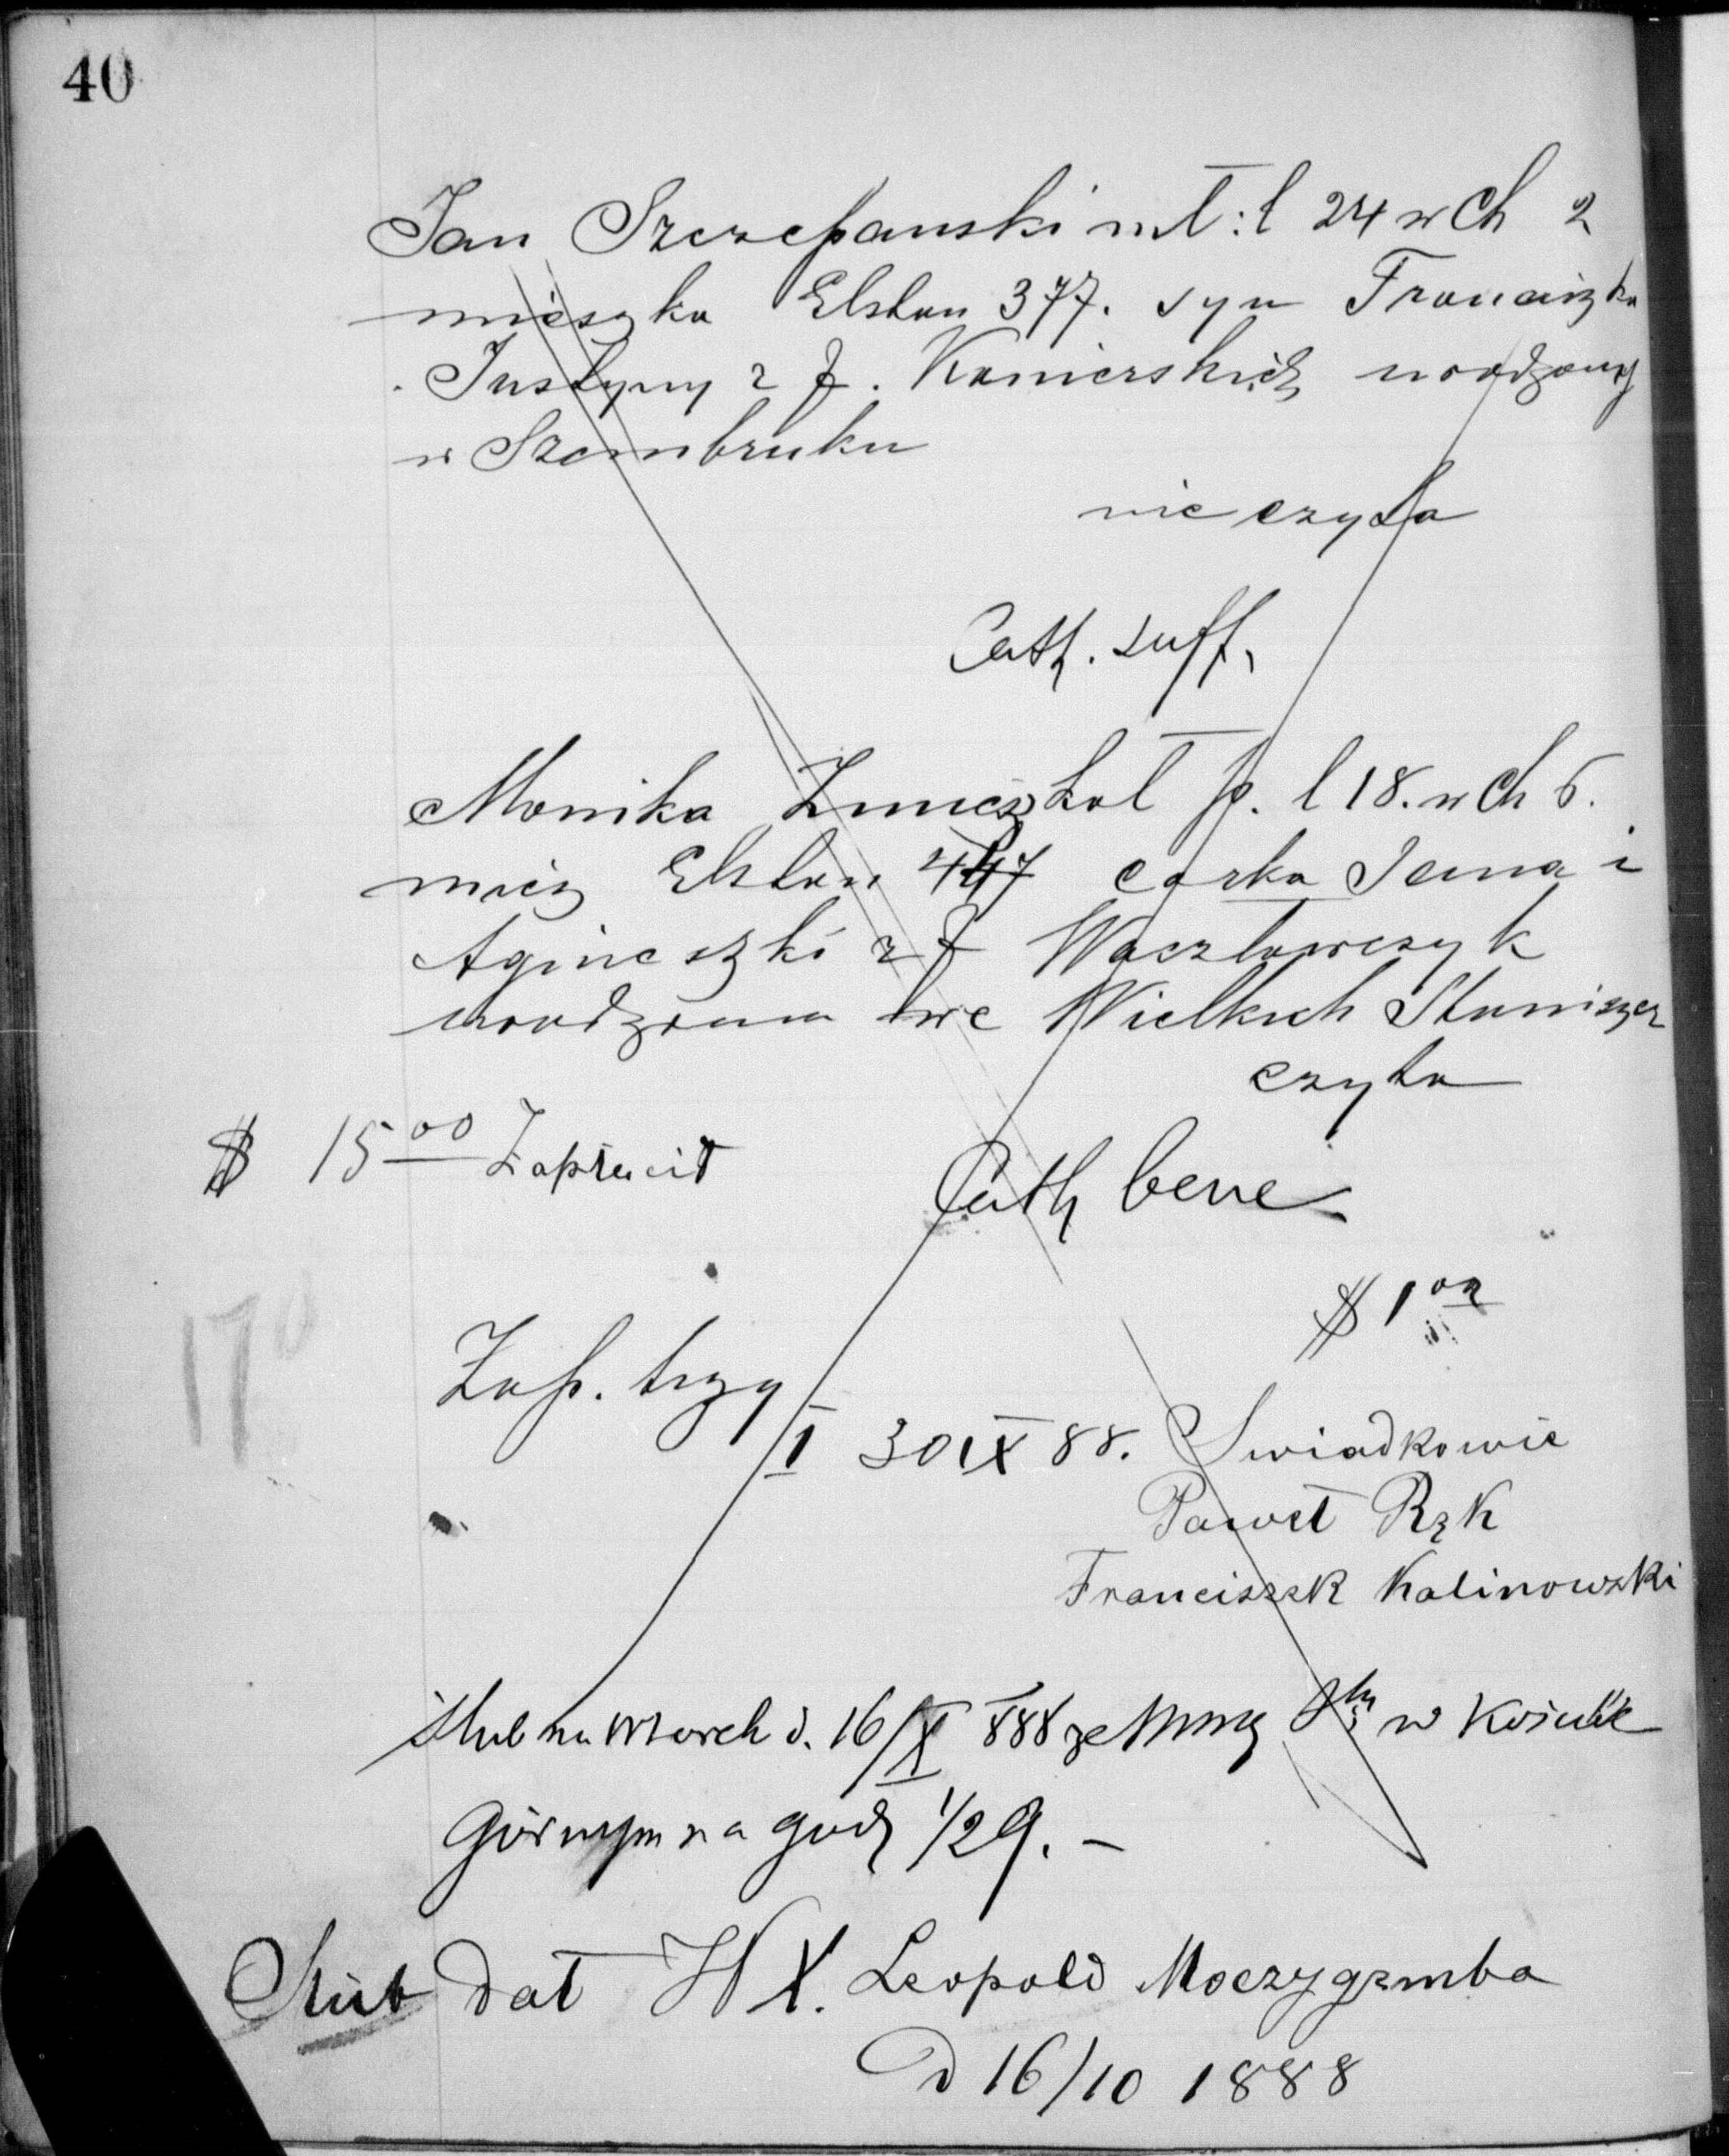 40
Jan Szczepanski mł: l 24 w Ch 2
mieszka Elston 377. syn Franciszka
. Justyny z f. Kamierskich urodzony
w Szembruku
nie czyta
Cath. suff.
Monika p. l 18. w Ch 6.
miesz Elston 447 corka Jana i
Agnieszki z f Waczlawczyk
urodzona we Wielkich
czyta
$ 15 00 Zapłacił
Cath bene
$ 1 00
170
Zap. trzy
I 30 IX 88. Swiadkowie
Paweł Rąk
Franciszek Kalinowski
ślub na Wtorek d. 16/X 888 ze Mszą w Kościele
Górnym na godz 1/2 9. –
Ślub dał W X. Leopold Moczygemba
D 16/10 1888